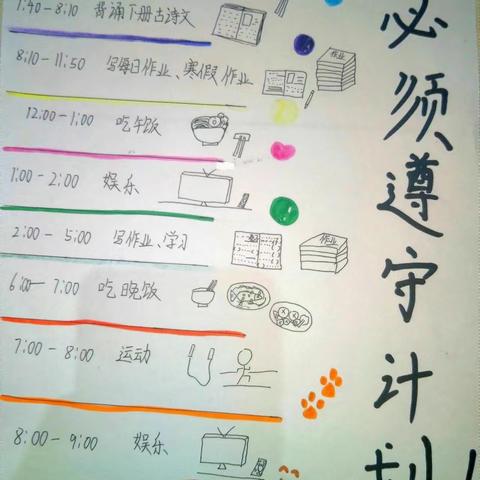 1:40-8:10 背诵下册古诗文
8:10-11:50 写每日作业、寒假作业
作业
12:00-1:00 吃午饭
1:00-2:00 娱乐
2:00-5:00 写作业、学习
作业
6:00-7:00 吃晚饭
7:00-8:00 运动
8:00-9:00 娱乐
必须遵守计划！